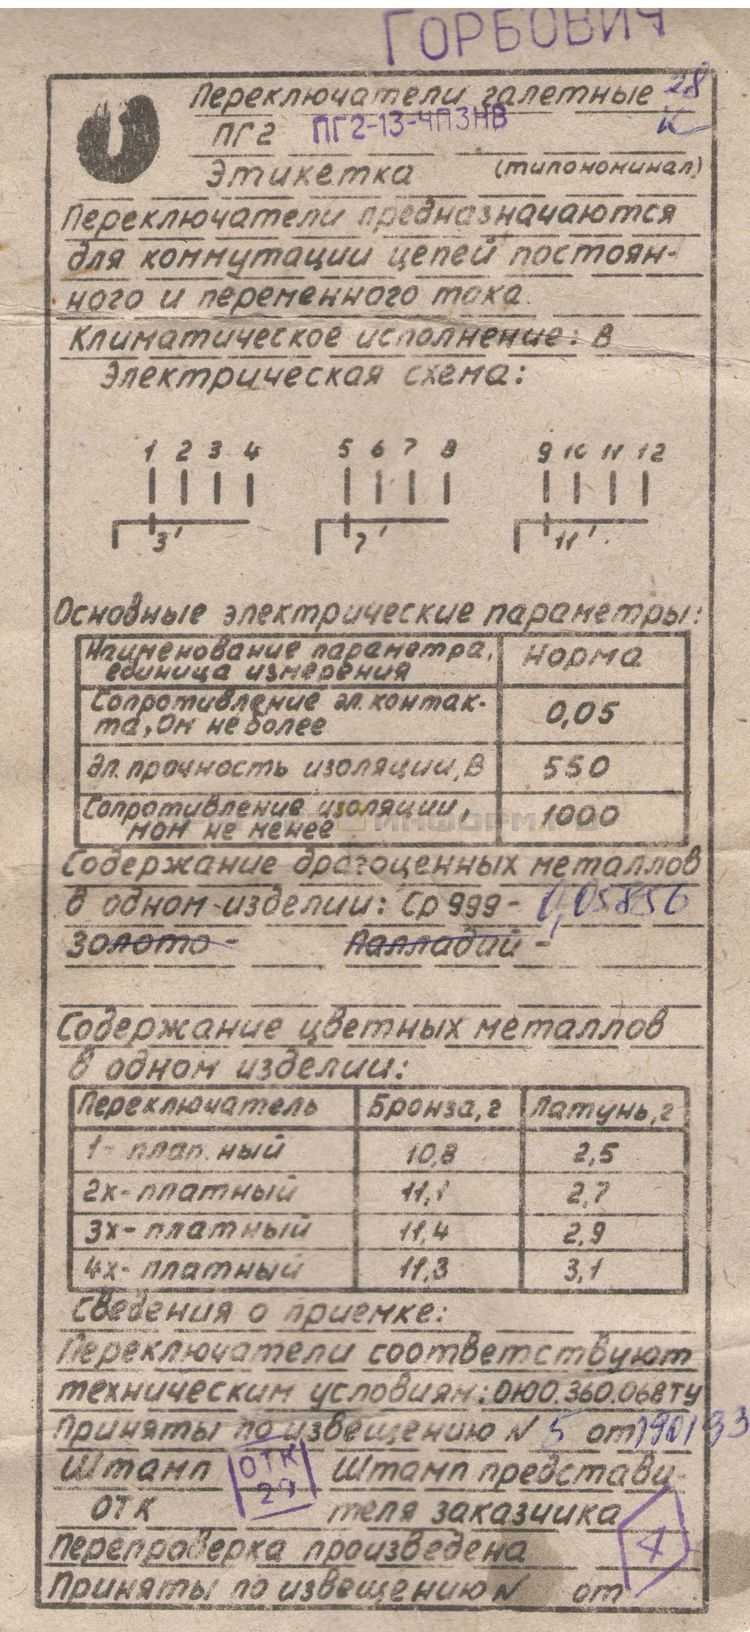 ГОРБОВИЧ
Переключатели галетные 28
ПГ2 ПГ2-13-4П3НВ К
Этикетка (типономинал)
Переключатели предназначаются
для коммутации цепей постоян-
ного и переменного тока.
Климатическое исполнение: В
Электрическая схема:
1 2 3 4 5 6 7 8 9 10 11 12
3' 7' 11'
Основные электрические параметры:
Наименование параметра, Норма
единица измерения
Сопротивление эл. контак- 0,05
та, Ом не более
Эл. прочность изоляции, В 550
Сопротивление изоляции, 1000
мом не менее
Содержание драгоценных металлов
в одном изделии: Ср 999 - 0,05856
Золото - Палладий -
Содержание цветных металлов
в одном изделии:
Переключатель Бронза, г Латунь, г
1- плат.ный 10,8 2,5
2х- платный 11,1 2,7
3х- платный 11,4 2,9
4х- платный 11,3 3,1
Сведения о приемке:
Переключатели соответствуют
техническим условиям: ОЮ0.360.068ТУ
Приняты по извещению N 5 от 190193
Штамп ОТК Штамп представи-
ОТК 29 теля заказчика 4
Перепроверка произведена
Приняты по извещению N от